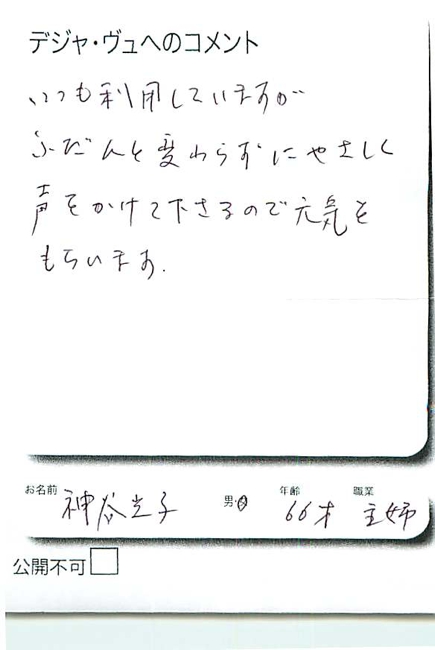 デジャ・ヴュへのコメント
いつも利用していますが
ふだんと変わらずにやさしく
声をかけて下さるので元気を
もらいます.
お名前 神谷光子 男・女 年齢 66才 職業 主婦
公開不可